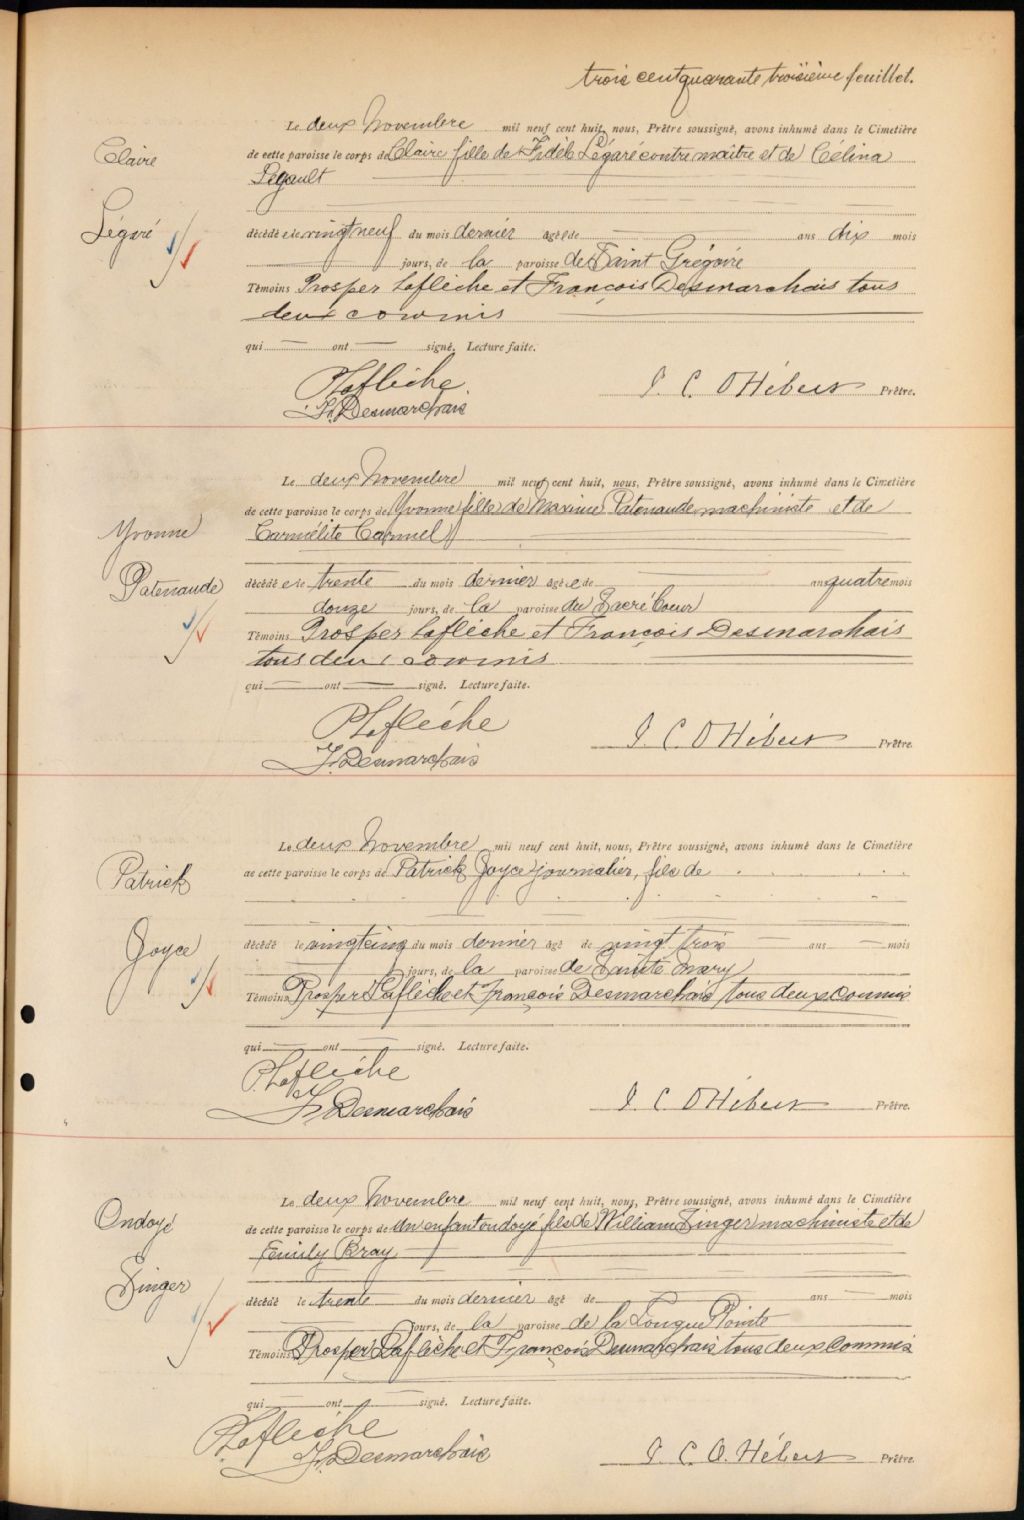 trois cent quarante troisième feuillet.
Claire
Légaré
Le deux Novembre mil neuf cent huit, nous, Prêtre soussigné, avons inhumé dans le Cimetière
de cette paroisse le corps de Claire fille de Fidèle Légaré contremaître et de Célina
Pegault
décédée le vingt neuf du mois dernier âgée de — ans dix mois
jours, de la paroisse de Saint Grégoire
Témoins Prosper Laflèche et François Desmarchais tous
deux commis
qui — ont — signé. Lecture faite.
P Laflèche
F. Desmarchais
J. C. O Hébert Prêtre.
Yvonne
Patenaude
Le deux Novembre mil neuf cent huit, nous, Prêtre soussigné, avons inhumé dans le Cimetière
de cette paroisse le corps de Yvonne fille de Maxime Patenaude machiniste et de
Carmélite Carmel
décédée le trente du mois dernier âgée de — ans quatre mois
douze jours, de la paroisse du Sacré Coeur
Témoins Prosper Laflèche et François Desmarchais
tous deux commis
qui — ont — signé. Lecture faite.
P Laflèche
F. Desmarchais
J. C. O Hébert Prêtre.
Patrick
Joyce
Le deux Novembre mil neuf cent huit, nous, Prêtre soussigné, avons inhumé dans le Cimetière
de cette paroisse le corps de Patrick Joyce journalier, fils de
décédé le vingt cinq du mois dernier âgé de vingt trois — ans — mois
jours, de la paroisse de Sainte Mary
Témoins Prosper Laflèche et François Desmarchais tous deux commis
qui — ont — signé. Lecture faite.
P. Laflèche
F. Desmarchais
J. C. O Hébert Prêtre.
Ondoyé
Singer
Le deux Novembre mil neuf cent huit, nous, Prêtre soussigné, avons inhumé dans le Cimetière
de cette paroisse le corps de un enfant ondoyé fils de William Singer machiniste et de
Emily Bray
décédé le trente du mois dernier âgé de — ans — mois
jours, de la paroisse de la Longue Pointe
Témoins Prosper Laflèche et François Desmarchais tous deux commis
qui — ont — signé. Lecture faite.
P. Laflèche
F. Desmarchais
J. C. O. Hébert Prêtre.